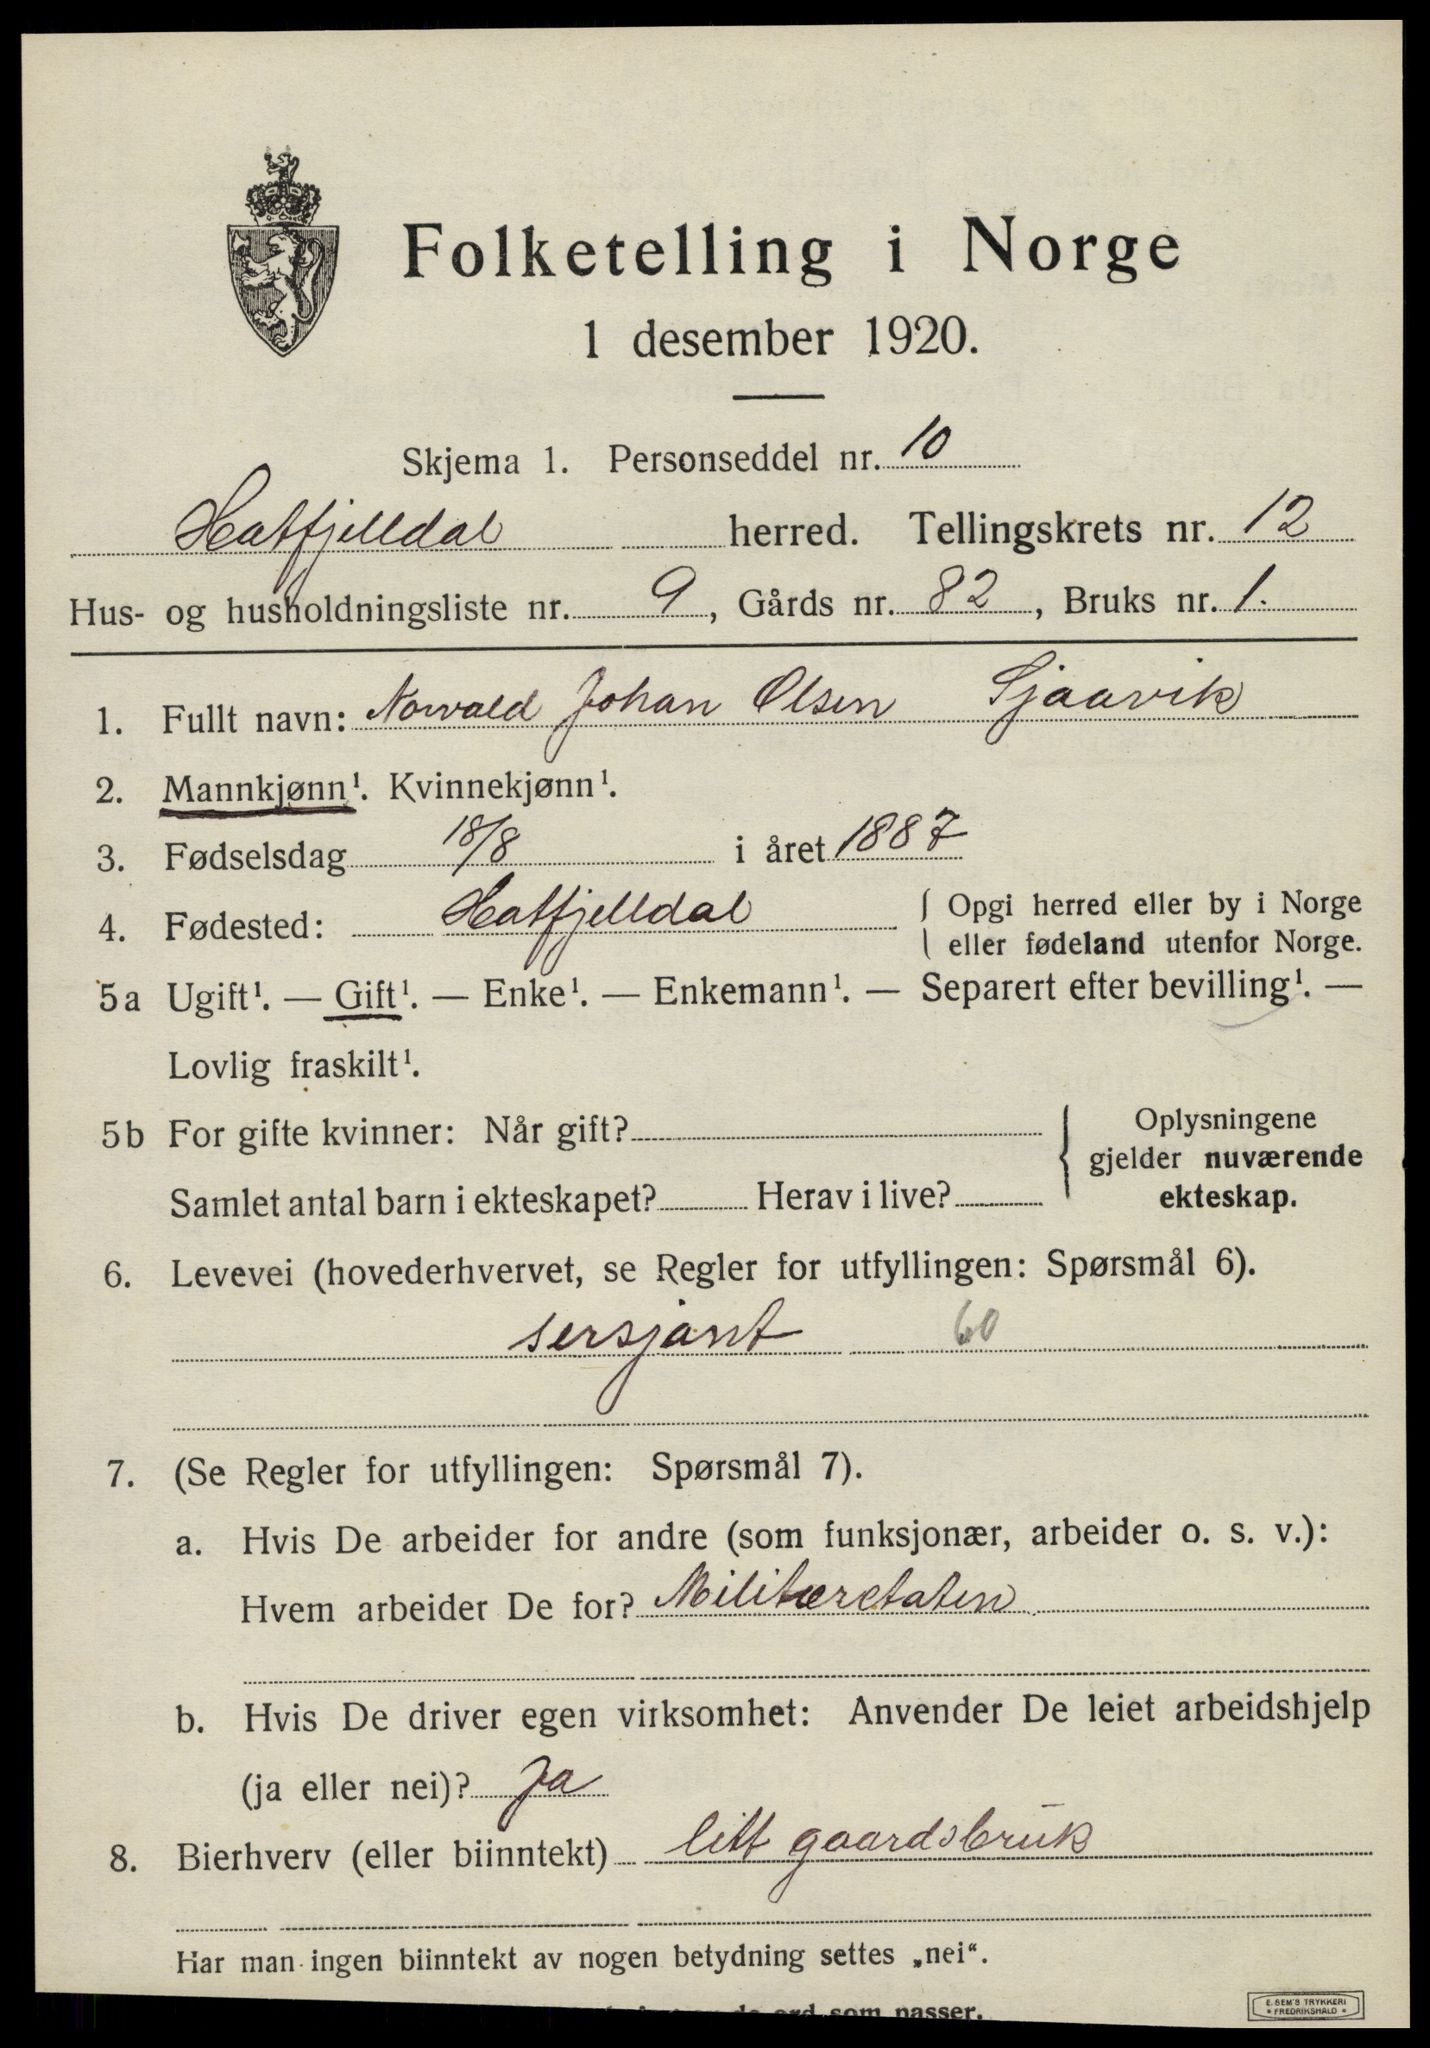 Folketelling i Norge
1 desember 1920.
Skjema 1. Personseddel nr. 10
Hatfjelldal herred. Tellingskrets nr. 12
Hus- og husholdningsliste nr. 9, Gårds nr. 82, Bruks nr. 1.
1. Fullt navn: Norvald Johan Olsen Sjaavik
2. Mannkjønn¹. Kvinnekjønn¹.
3. Fødselsdag 18/8 i året 1887
4. Fødested: Hatfjelldal { Opgi herred eller by i Norge
eller fødeland utenfor Norge.
5a Ugift¹. — Gift¹. — Enke¹. — Enkemann¹. — Separert efter bevilling¹. —
Lovlig fraskilt¹.
5b For gifte kvinner: Når gift? { Oplysningene
gjelder nuværende
Samlet antal barn i ekteskapet? Herav i live? ekteskap.
6. Levevei (hovederhvervet, se Regler for utfyllingen: Spørsmål 6).
sersjant 60
7. (Se Regler for utfyllingen: Spørsmål 7).
a. Hvis De arbeider for andre (som funksjonær, arbeider o. s. v.):
Hvem arbeider De for? Militæretaten
b. Hvis De driver egen virksomhet: Anvender De leiet arbeidshjelp
(ja eller nei)? Ja
8. Bierhverv (eller biinntekt) litt gaardsbruk
Har man ingen biinntekt av nogen betydning settes „nei“.
ord som passer.
E. SEM'S TRYKKERI
FREDRIKSHALD